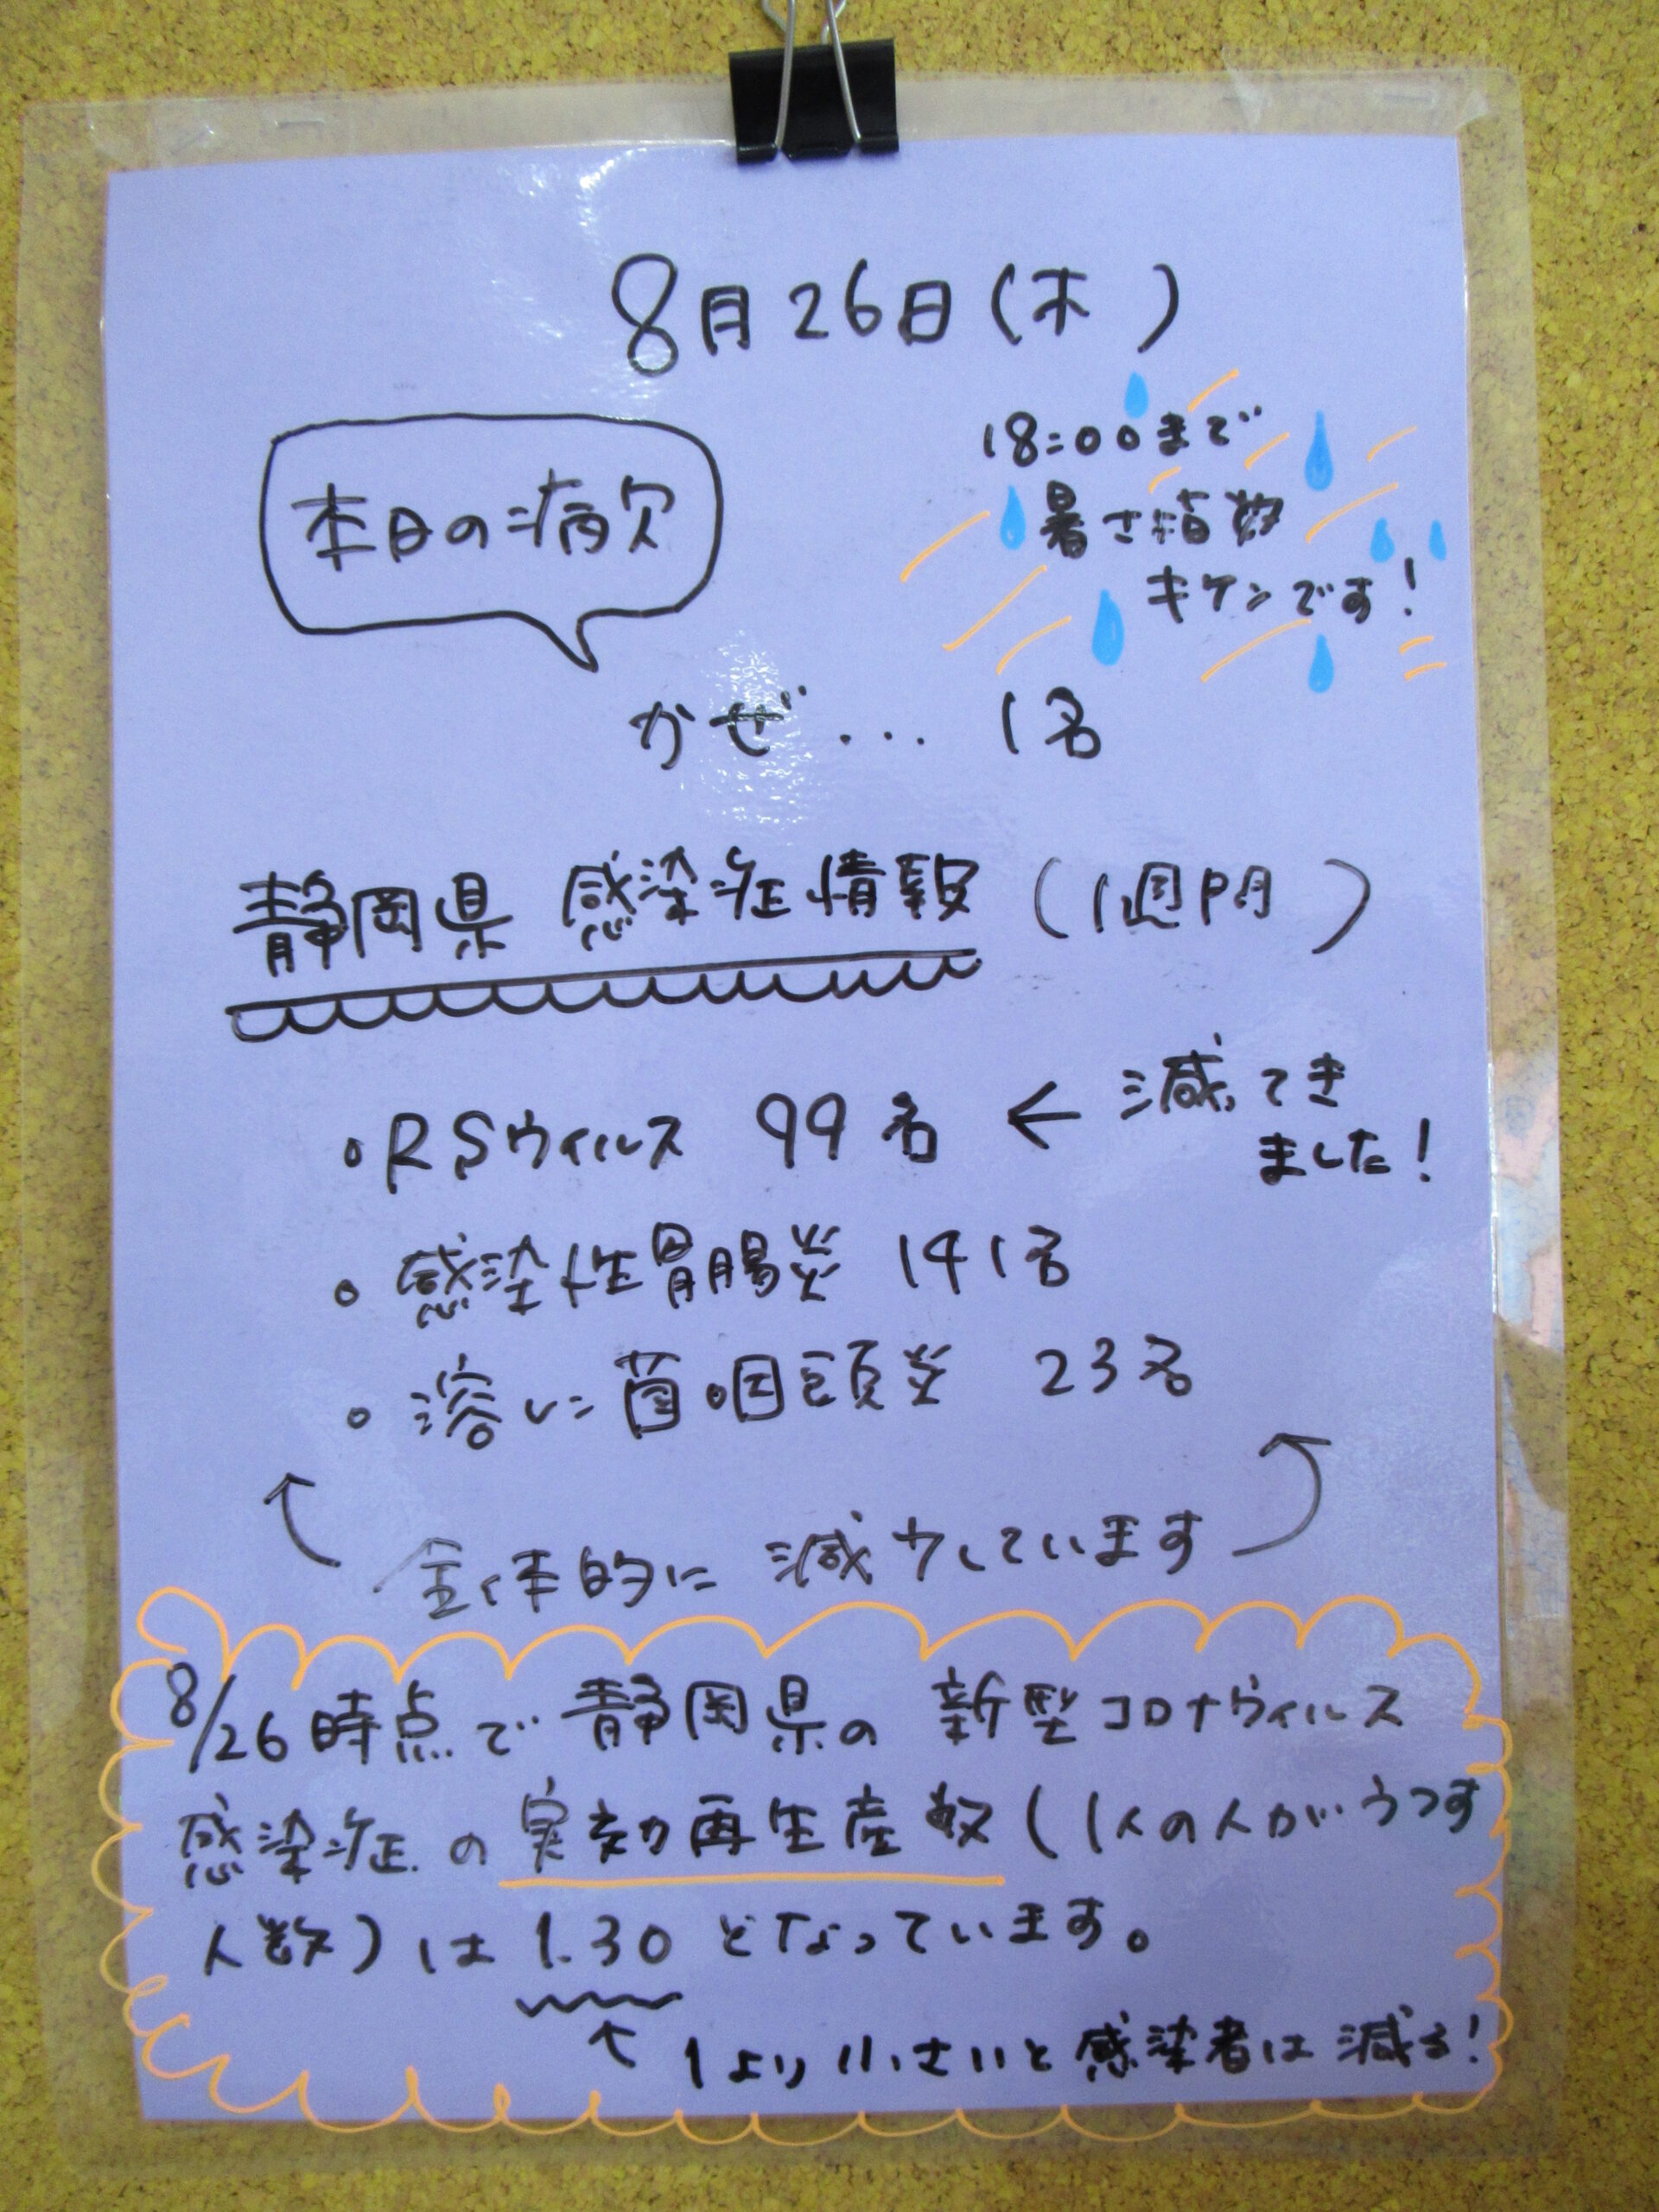 8月26日(木)
18:00まで
暑さ指数
キケンです!
本日の病欠
かぜ... 1名
静岡県 感染症情報 (1週間)
・RSウィルス 99名 ← 減ってき
ました!
・感染性胃腸炎 141名
・溶レン菌咽頭炎 23名
全体的に減少しています
8/26時点で静岡県の新型コロナウィルス
感染症の実効再生産数(1人の人がうつす
人数)は1.30となっています。
↑ 1より小さいと感染者は減る!